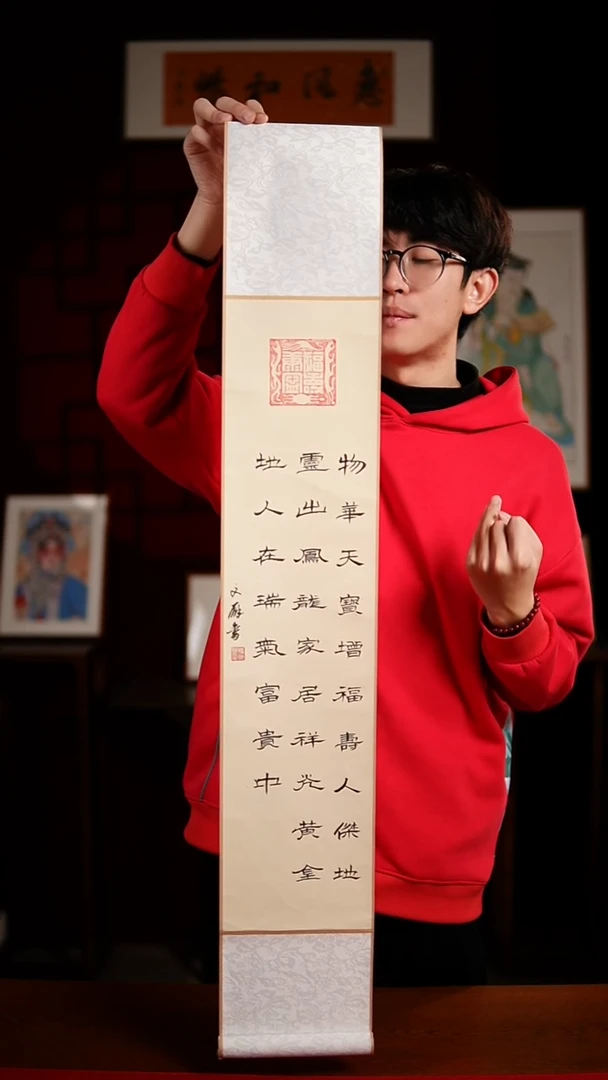 惠風和暢
福壽康寧
物華天寶增福壽人傑地
靈出鳳龍家居祥光黃金
地人在瑞氣富貴中
文 書